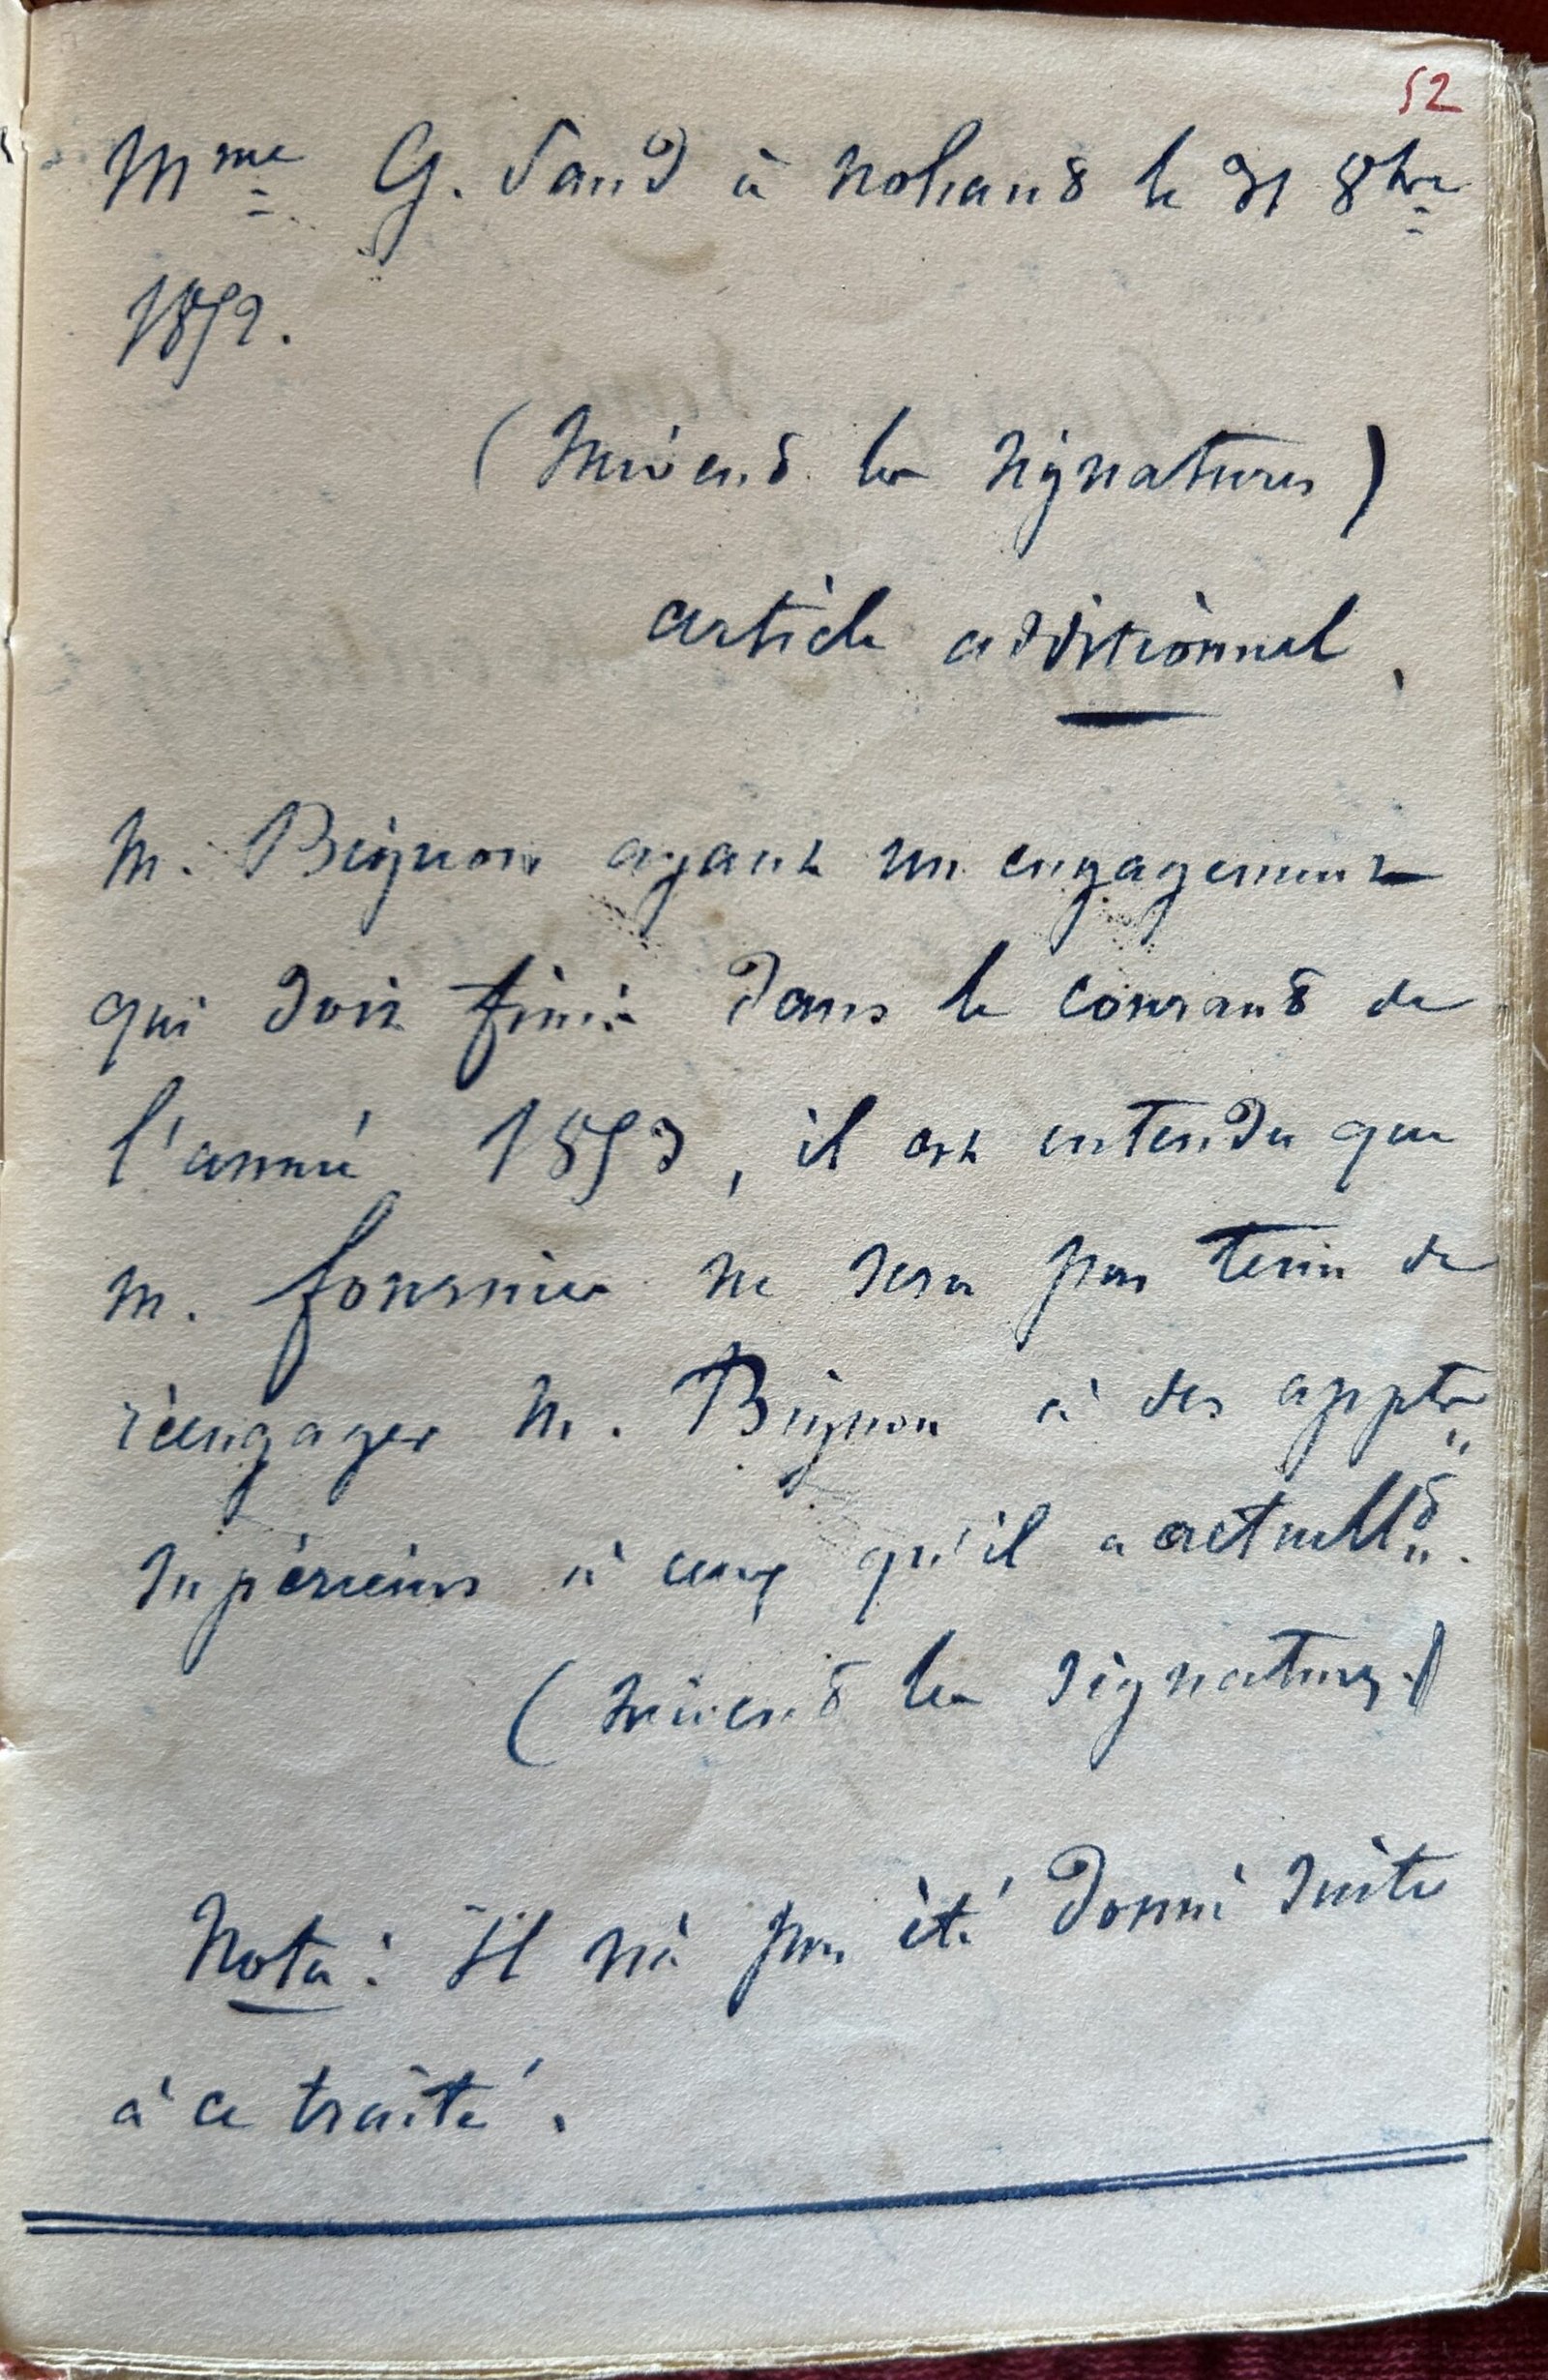 52
Mme G. Sand à Nohant le 31 8bre
1852.
(Suivent les signatures)
article additionnel.
M. Bignon ayant un engagement
qui doit finir dans le courant de
l'année 1853, il est entendu que
M. Fournier ne sera pas tenu de
réengager M. Bignon à des appts
supérieurs à ceux qu'il a actuellt.
(Suivent les signatures)
Nota : Il n'a pas été donné suite
à ce traité.